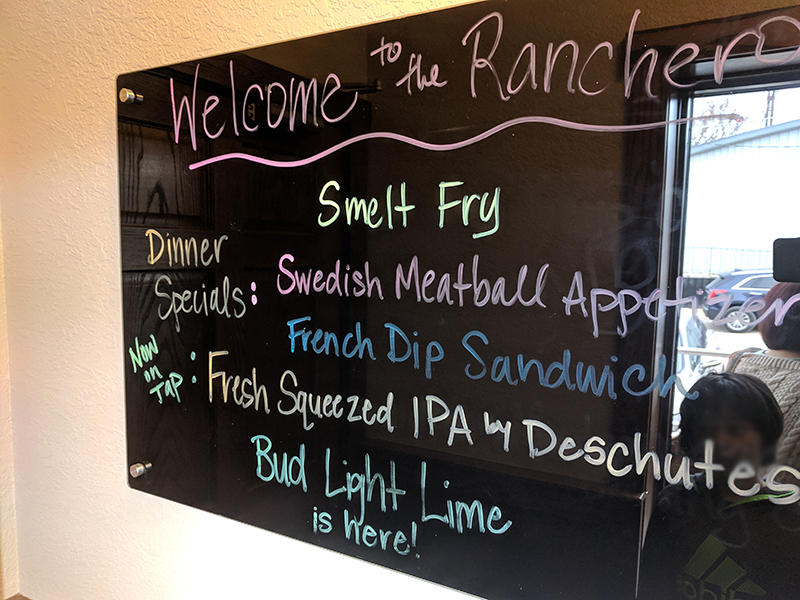 Welcome to the Ranchero
Smelt Fry
Dinner Specials: Swedish Meatball Appetizer
French Dip Sandwich
Now on Tap: Fresh Squeezed IPA by Deschutes
Bud Light Lime
is here!